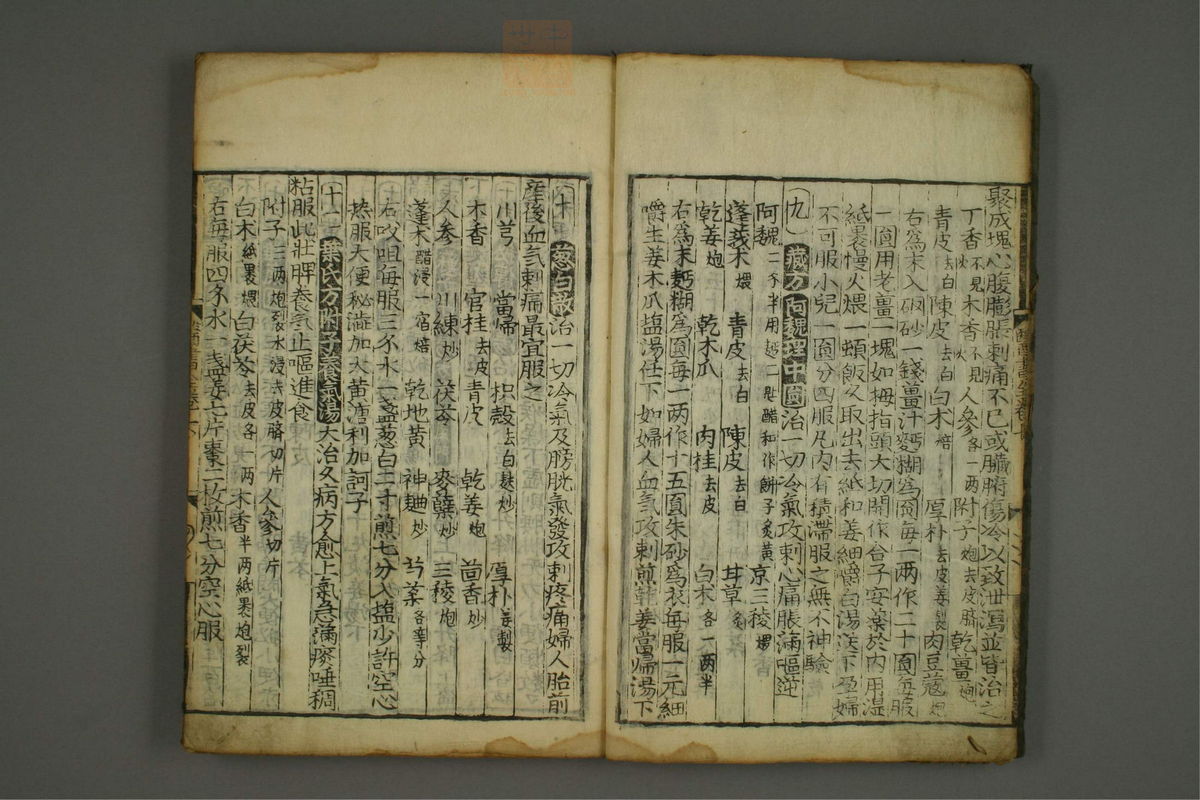 聚成塊心腹膨脹刺痛不已或臟腑傷冷以致泄瀉並皆治之
丁香不見火 木香不見火 人參各一兩 附子炮去皮臍 乾薑炮
青皮去白 陳皮去白 白朮焙 厚朴去皮姜製 肉豆蔻炮
右爲末入硇砂一錢薑汁麪糊爲圓每一兩作二十圓每服
一圓用老薑一塊如拇指頭大切開作合子安藥於內用濕
紙裹慢火煨一頓飯久取出去紙和姜細嚼白湯送下孕婦
不可服小兒一圓分四服凡內有積滯服之無不神驗
九 藏方阿魏理中圓 治一切冷氣攻刺心痛脹滿嘔逆
阿魏二分半用麪一匙醋和作餅子炙黃 京三稜煨
蓬莪朮煨 青皮去白 陳皮去白 甘草
乾姜炮 乾木瓜 肉桂去皮 白朮各一兩半
右爲末麪糊爲圓每一兩作十五圓朱砂爲衣每服一元細
嚼生姜木瓜塩湯任下如婦人血氣攻刺煎乾姜當歸湯下
十 葱白散 治一切冷氣及膀胱氣發攻刺疼痛婦人胎前
產後血氣刺痛最宜服之
川芎 當歸 枳殼去白麩炒 厚朴姜製
木香 官桂去皮 青皮 乾姜炮 茴香炒
人參 川練炒 茯苓 麥糵炒 三稜炮
蓬朮醋浸一宿焙 乾地黃 神麯炒 芍藥各等分
右㕮咀每服三分水一盞葱白二寸煎七分入塩少許空心
热服大便秘澁加大黃溏利加訶子
十一 葉氏方附子養氣湯 大治久病方愈上氣急滿痰唾稠
粘服此壯脾養氣止嘔進食
附子二兩炮裂水浸去皮臍切片 人參切片
白朮紙裹煨 白茯苓去皮各 木香半兩紙裹炮裂
右每服四分水一盞姜七片棗二枚煎七分空心服